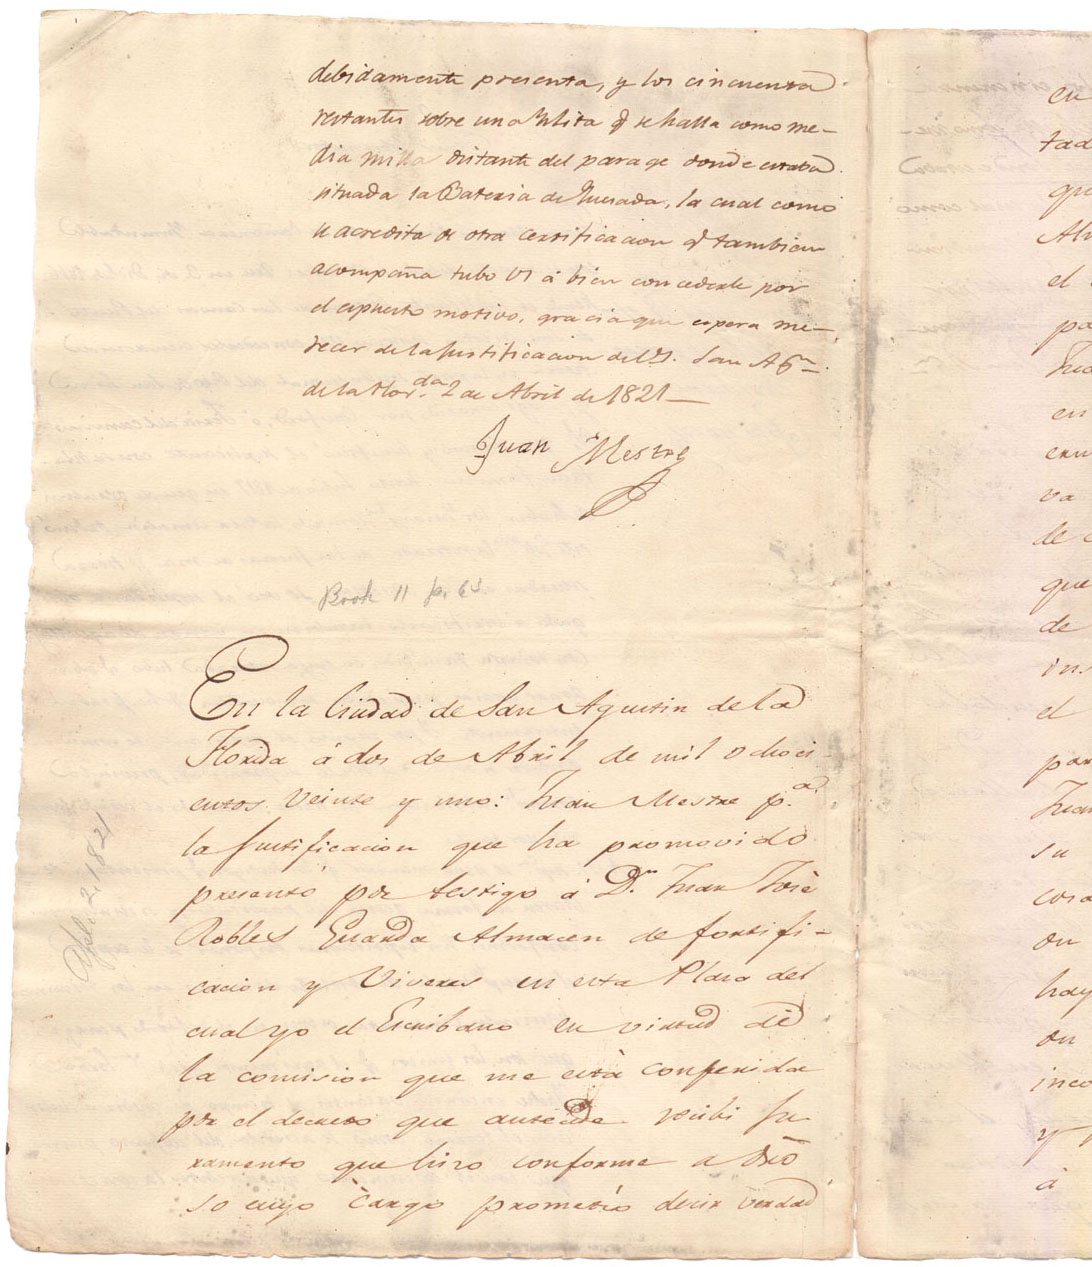 debidamente presenta, y los cincuenta
restantes sobre una Islita q̃ se halla como me-
dia milla distante del parage donde estaba
situada la Bateria de Quesada, la cual como
se acredita de otra certificacion q̃ tambien
acompaña tubo VS á bien concederle por
el espuesto motivo, gracia que espera me-
recer de la Justificacion de VS. San Agn.
de la Flor.da 2 de Abril de 1821—
Juan Mestre
Book 11 p. 63.
En la Ciudad de San Agustin de la
Florida á dos de Abril de mil ochoci-
entos veinte y uno: Juan Mestre p.a
la justificacion que ha promovido
presentó por testigo á Dn Juan José
Robles Guarda Almacen de fortifi-
cacion y Viveres en esta Plaza del
cual yo el Escribano en virtud de
la comision que me está conferida
por el decreto que antecede recibi ju
ramento que hizo conforme a dro
so cuyo cargo prometio decir verdad
April 2, 1821
en
tad
qu
el
pa
Jua
en
va
de
que
de
ins
el
par
Juan
su
cosa
on
hay
on
inco
y
á